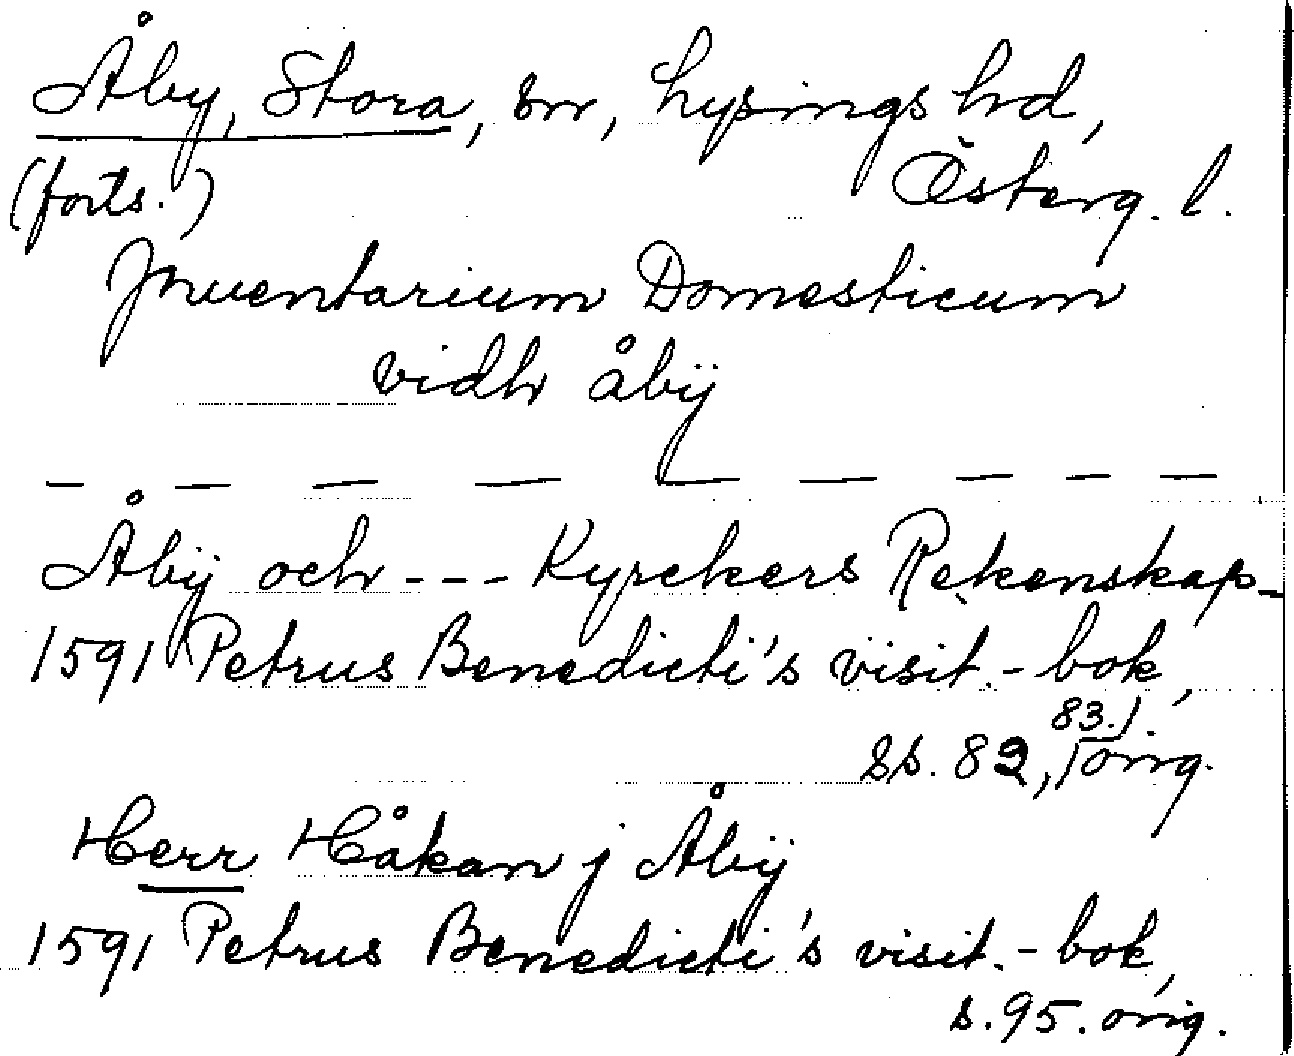 Åby, Stora, sn, Lysings hd,
(forts.) Österg. l.
Jnuentarium Domesticum
vidh åbÿ
Åbÿ och --- Kyrckers Rekenskap-
1591 Petrus Benedicti's visit.-bok,
ss. 82, 83.) orig.
Herr Håkan j Åbÿ
1591 Petrus Benedicti's visit.-bok,
s. 95. orig.